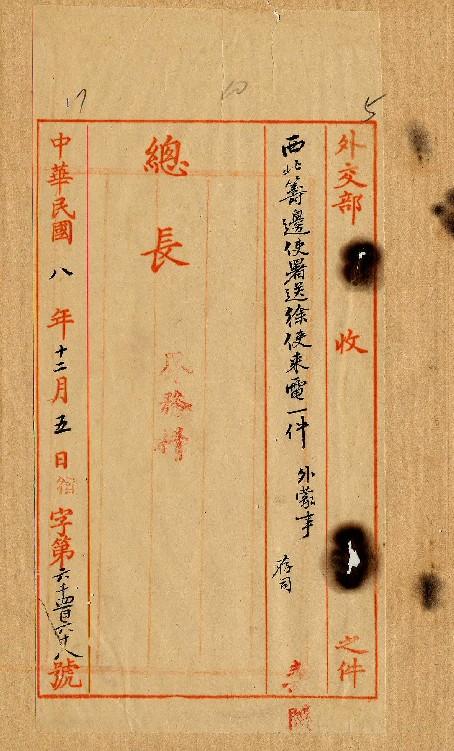 外交部 收 之件
西北籌邊使署送徐使來電一件 外蒙事
存司
總長
中華民國八年十二月五日宿字第六千四百六十八號
5
17